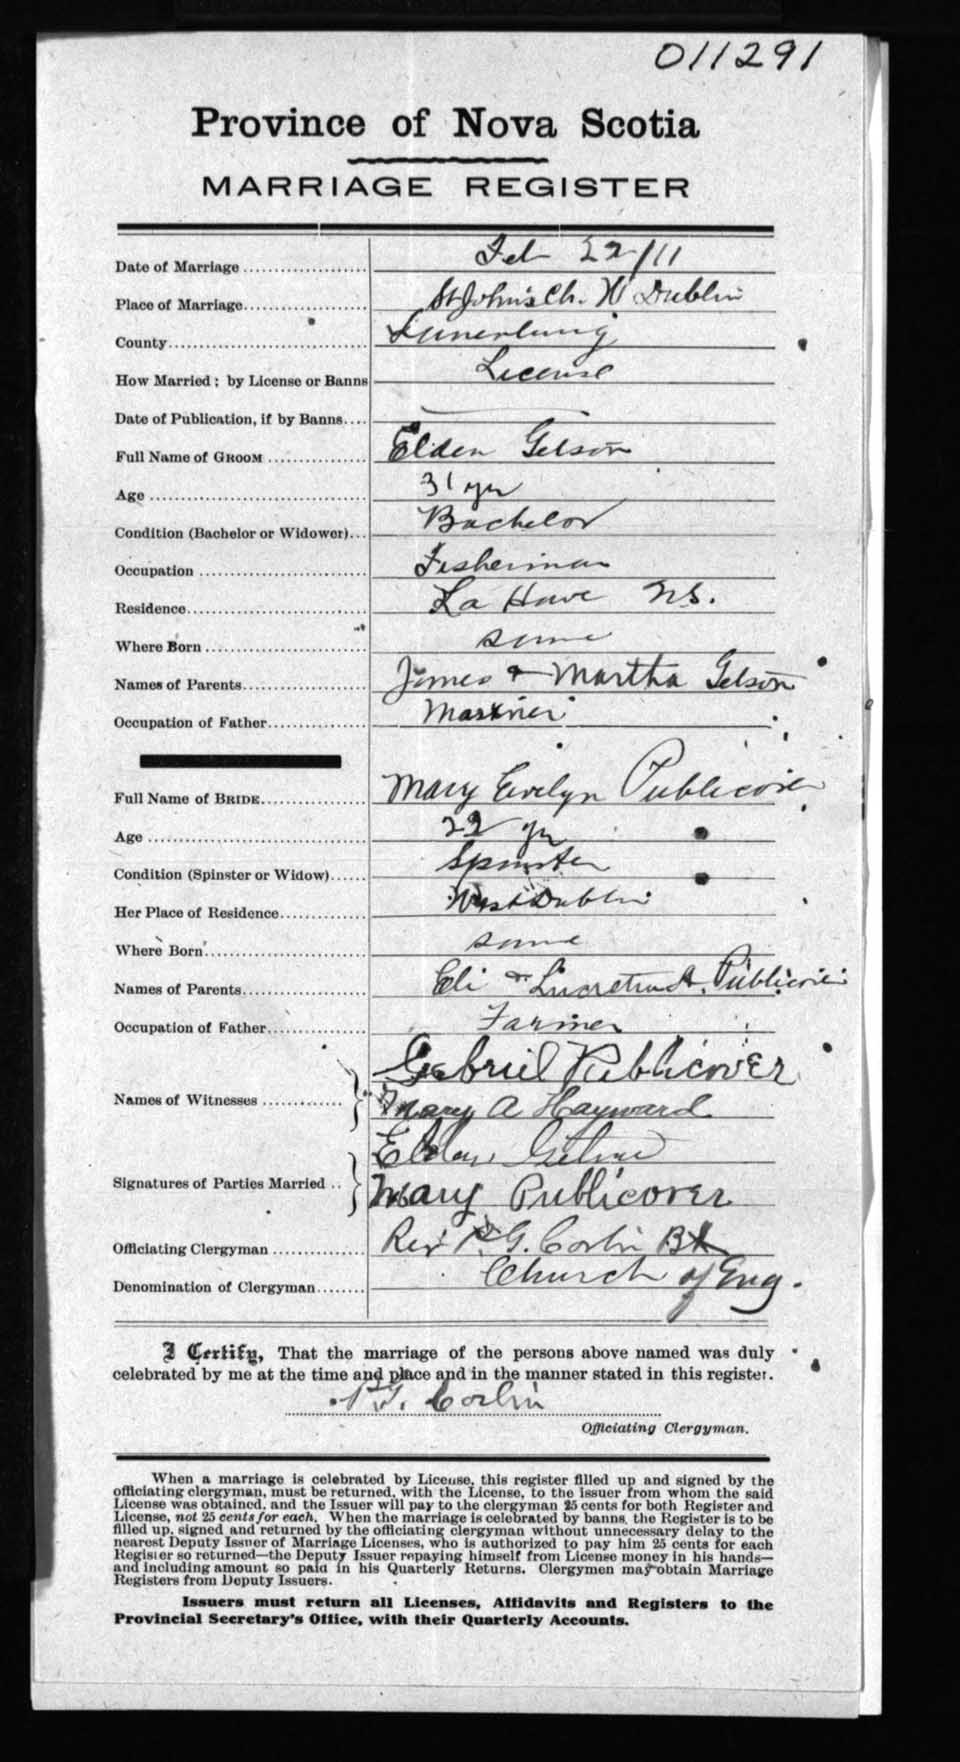 011291
Province of Nova Scotia
MARRIAGE REGISTER
Date of Marriage Feb 22/11
Place of Marriage St John's Ch. W Dublin
County Lunenburg
How Married; by License or Banns License
Date of Publication, if by Banns
Full Name of GROOM Elden Gelson
Age 31 yr
Condition (Bachelor or Widower) Bachelor
Occupation Fisherman
Residence La Have NS.
Where Born same
Names of Parents James & Martha Gelson
Occupation of Father Mariner
Full Name of BRIDE Mary Evelyn Publicover
Age 22 yr
Condition (Spinster or Widow) Spinster
Her Place of Residence West Dublin
Where Born same
Names of Parents Eli & Publicover
Occupation of Father Farmer
Gabriel Publicover
Names of Witnesses Mary A Hayward
Elden
Signatures of Parties Married Mary Publicover
Officiating Clergyman Rev P. G. Corbin
Denomination of Clergyman Church of Eng.
I Certify, That the marriage of the persons above named was duly
celebrated by me at the time and place and in the manner stated in this register.
P.G. Corbin
Officiating Clergyman.
When a marriage is celebrated by License, this register filled up and signed by the
officiating clergyman, must be returned, with the License, to the issuer from whom the said
License was obtained, and the Issuer will pay to the clergyman 25 cents for both Register and
License, not 25 cents for each. When the marriage is celebrated by banns, the Register is to be
filled up, signed and returned by the officiating clergyman without unnecessary delay to the
nearest Deputy Issuer of Marriage Licenses, who is authorized to pay him 25 cents for each
Register so returned—the Deputy Issuer repaying himself from License money in his hands—
and including amount so paid in his Quarterly Returns. Clergymen may obtain Marriage
Registers from Deputy Issuers.
Issuers must return all Licenses, Affidavits and Registers to the
Provincial Secretary's Office, with their Quarterly Accounts.